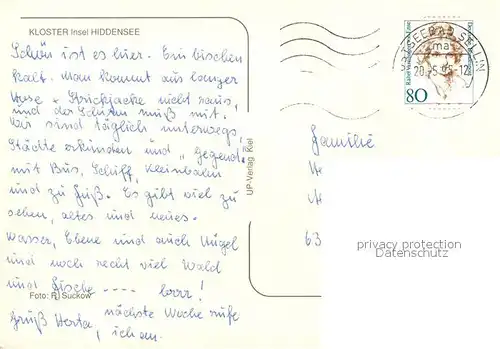 KLOSTER Insel HIDDENSEE
Schön ist es hier. Ein bischen
kalt. Man kommt aus langer
Hose + Strickjacke nicht raus,
und der Schirm muß mit.
Wir sind täglich unterwegs,
Städte erkunden und "Gegend"
mit Bus, Schiff, Kleinbahn
und zu Fuß. Es gibt viel zu
sehen, altes und neues.
Wasser, Ebene und auch Hügel
und noch recht viel Wald
und Fische ---- brrr!
Foto: R. Suckow
nächste Woche rufe
Gruß Herta, ich an.
UP-Verlag Kiel
OSTSEEBAD SELLIN
20.-5.95-12
80
Familie
63
privacy protection
Datenschutz